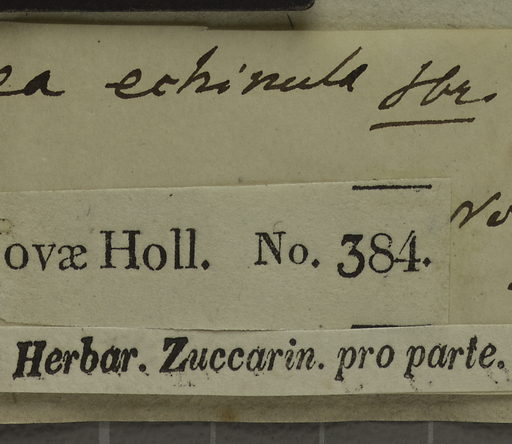 ea echinula Sbr.
ovæ Holl. No. 384.
No
Herbar. Zuccarin. pro parte.